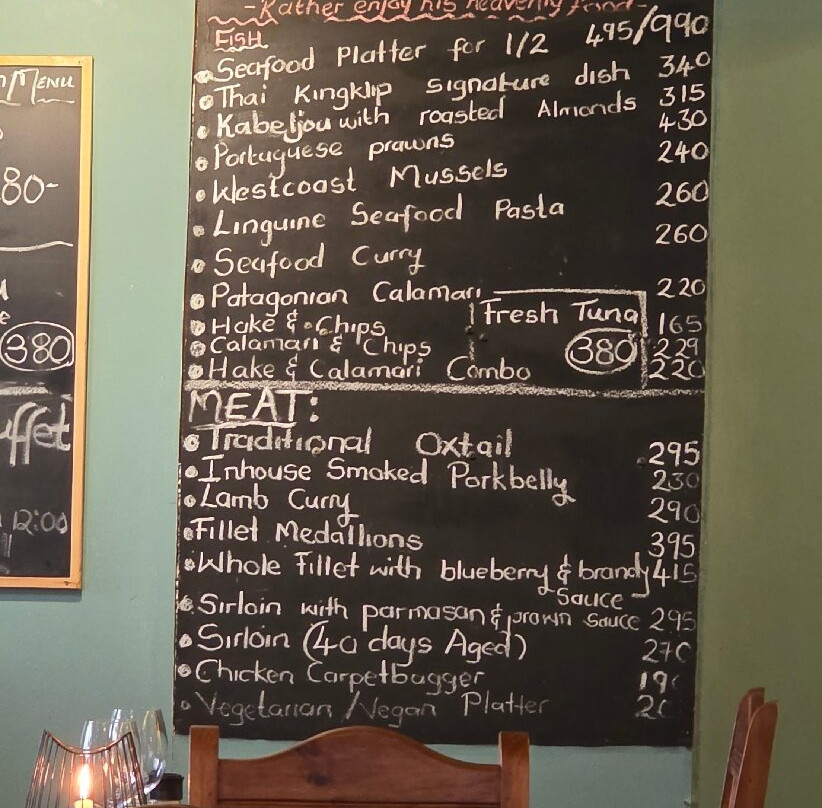 MENU
80-
380
12:00
-Rather enjoy his heavenly food-
FISH
Seafood Platter for 1/2 495/990
Thai Kingklip signature dish 340
Kabeljou with roasted Almonds 315
Portuguese prawns 430
Westcoast Mussels 240
Linguine Seafood Pasta 260
Seafood Curry 260
Patagonian Calamari 220
Fresh Tuna
380
Hake & Chips 165
Calamari & Chips 229
Hake & Calamari Combo 220
MEAT:
Traditional Oxtail 295
Inhouse Smoked Porkbelly 230
Lamb Curry 290
Fillet Medallions 395
Whole Fillet with blueberry & brandy 415
Sauce
Sirloin with parmasan & prawn sauce 295
Sirloin (40 days Aged) 270
Chicken Carpetbagger
Vegetarian/Vegan Platter